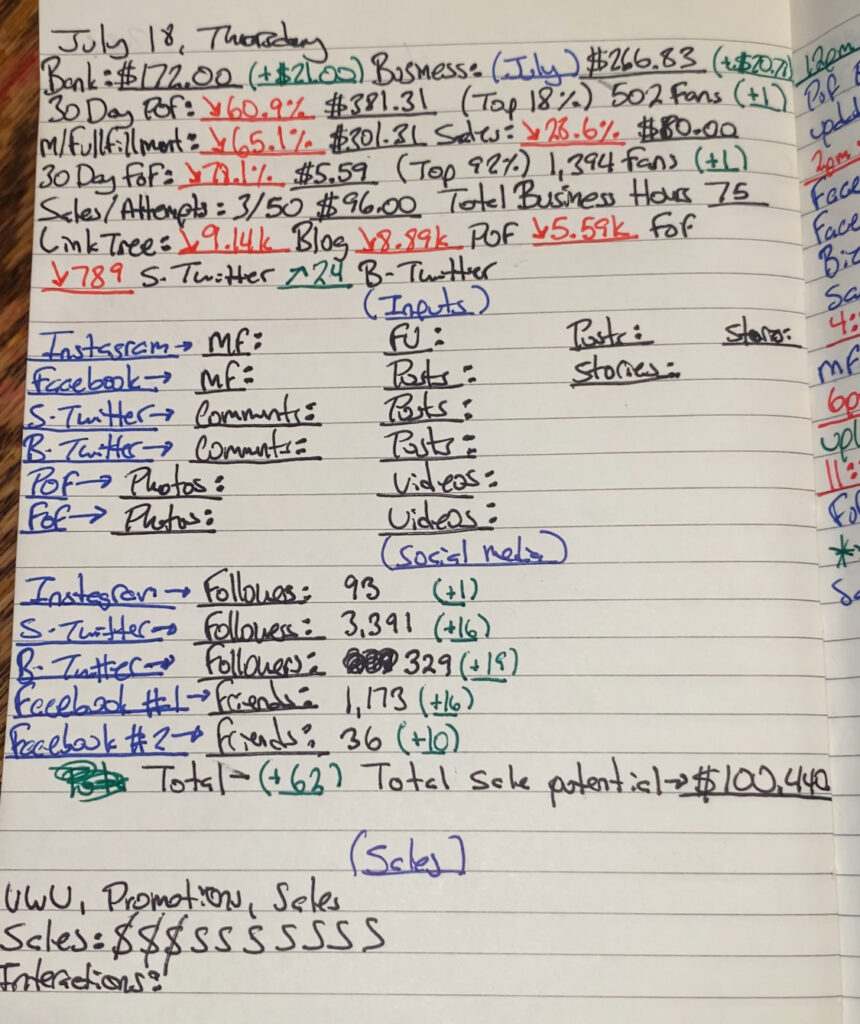 July 18, Thursday
Bank: $172.00 (+$21.00) Business: (July) $266.83 (+$20.72
30 Day POF: ↘60.9% $381.31 (Top 18%) 502 Fans (+1)
M/Fullfillment: ↘65.1% $301.31 Sales: ↘28.6% $80.00
30 Day FOF: ↘78.1% $5.59 (Top 92%) 1,394 Fans (+1)
Sales/Attempts: 3/50 $96.00 Total Business Hours 75
LinkTree: ↘9.14k Blog ↘8.89k POF ↘5.59k FOF
↘789 S-Twitter ↗24 B-Twitter
(Inputs)
Instagram→ MF: FU: Posts: Stories:
Facebook→ MF: Posts: Stories:
S-Twitter→ Comments: Posts:
B-Twitter→ Comments: Posts:
POF→ Photos: Videos:
FOF→ Photos: Videos:
(Social Media)
Instagram→ Followers: 93 (+1)
S-Twitter→ Followers: 3,391 (+16)
B-Twitter→ Followers: 329 (+19)
Facebook #1→ Friends: 1,173 (+16)
Facebook #2→ Friends: 36 (+10)
Total- (+62) Total Sale potential→ $100,440
(Sales)
UWU, Promotion, Sales
Sales: $ $ $ S S S S S S S
Interactions:
12pm
POF
upda
2pm
Face
Face
Biz
Sa
4:
MF
6p
upl
11:
Fo
*
Sa